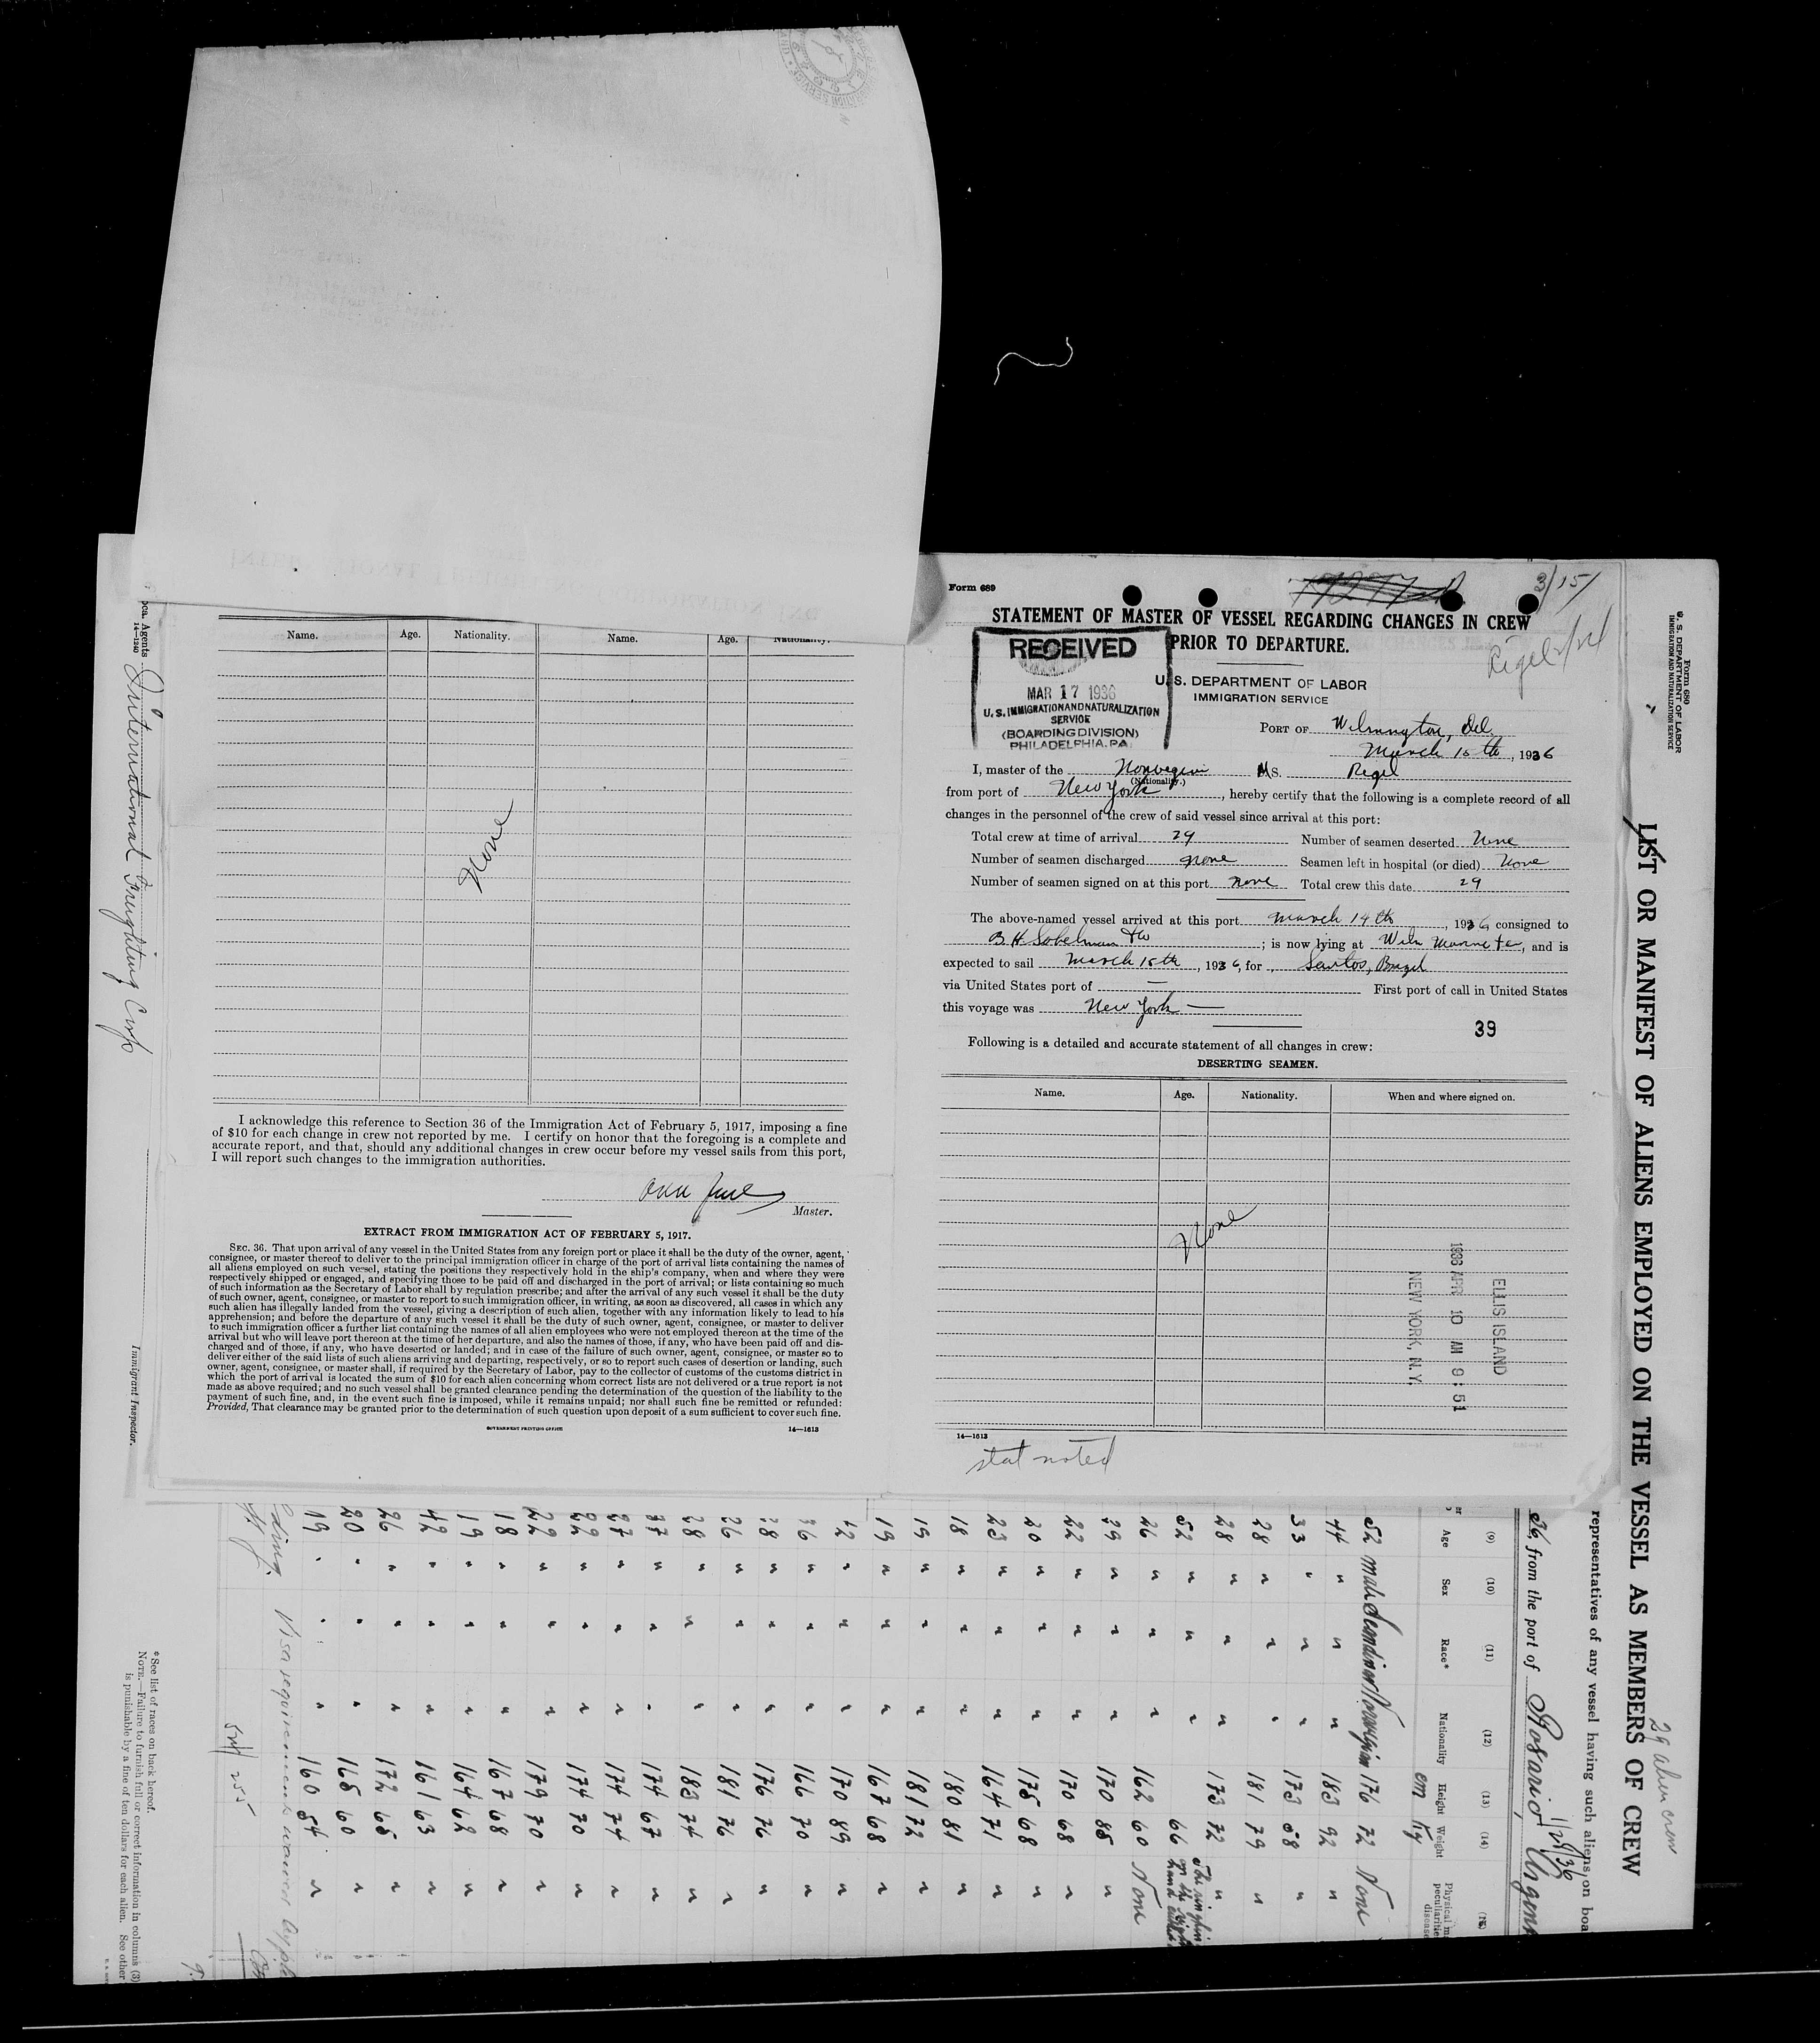 Form 689
3/15/
STATEMENT OF MASTER OF VESSEL REGARDING CHANGES IN CREW
PRIOR TO DEPARTURE.
RECEIVED
MAR 17 1936
U.S. IMMIGRATION AND NATURALIZATION
SERVICE
(BOARDING DIVISION)
PHILADELPHIA, PA.
U.S. DEPARTMENT OF LABOR
IMMIGRATION SERVICE
PORT OF Wilmington, Del.
March 15th, 1936
I, master of the Norwegian MS. Rigel
(Nationality.)
from port of New York, hereby certify that the following is a complete record of all
changes in the personnel of the crew of said vessel since arrival at this port:
Total crew at time of arrival 29 Number of seamen deserted None
Number of seamen discharged None Seamen left in hospital (or died) None
Number of seamen signed on at this port None Total crew this date 29
The above-named vessel arrived at this port March 14th, 1936 consigned to
B.H. Sobelman & Co; is now lying at Wilm Marine Ter, and is
expected to sail March 15th, 1936, for Santos, Brazil
via United States port of — First port of call in United States
this voyage was New York —
39
Following is a detailed and accurate statement of all changes in crew:
DESERTING SEAMEN.
Name. Age. Nationality. When and where signed on.
None
ELLIS ISLAND
1936 APR 10 AM 9:51
NEW YORK, N.Y.
14—1613
stat noted
Name. Age. Nationality. Name. Age. Nationality.
None
I acknowledge this reference to Section 36 of the Immigration Act of February 5, 1917, imposing a fine
of $10 for each change in crew not reported by me. I certify on honor that the foregoing is a complete and
accurate report, and that, should any additional changes in crew occur before my vessel sails from this port,
I will report such changes to the immigration authorities.
Master.
EXTRACT FROM IMMIGRATION ACT OF FEBRUARY 5, 1917.
SEC. 36. That upon arrival of any vessel in the United States from any foreign port or place it shall be the duty of the owner, agent,
consignee, or master thereof to deliver to the principal immigration officer in charge of the port of arrival lists containing the names of
all aliens employed on such vessel, stating the positions they respectively hold in the ship's company, when and where they were
respectively shipped or engaged, and specifying those to be paid off and discharged in the port of arrival; or lists containing so much
of such information as the Secretary of Labor shall by regulation prescribe; and after the arrival of any such vessel it shall be the duty
of such owner, agent, consignee, or master to report to such immigration officer, in writing, as soon as discovered, all cases in which any
such alien has illegally landed from the vessel, giving a description of such alien, together with any information likely to lead to his
apprehension; and before the departure of any such vessel it shall be the duty of such owner, agent, consignee, or master to deliver
to such immigration officer a further list containing the names of all alien employees who were not employed thereon at the time of the
arrival but who will leave port thereon at the time of her departure, and also the names of those, if any, who have been paid off and dis-
charged and of those, if any, who have deserted or landed; and in case of the failure of such owner, agent, consignee, or master so to
deliver either of the said lists of such aliens arriving and departing, respectively, or so to report such cases of desertion or landing, such
owner, agent, consignee, or master shall, if required by the Secretary of Labor, pay to the collector of customs of the customs district in
which the port of arrival is located the sum of $10 for each alien concerning whom correct lists are not delivered or a true report is not
made as above required; and no such vessel shall be granted clearance pending the determination of the question of the liability to the
payment of such fine, and, in the event such fine is imposed, while it remains unpaid; nor shall such fine be remitted or refunded:
Provided, That clearance may be granted prior to the determination of such question upon deposit of a sum sufficient to cover such fine.
GOVERNMENT PRINTING OFFICE 14—1613
Form 689
U. S. DEPARTMENT OF LABOR
IMMIGRATION AND NATURALIZATION SERVICE
LIST OR MANIFEST OF ALIENS EMPLOYED ON THE VESSEL AS MEMBERS OF CREW
29 alien crew
representatives of any vessel having such aliens on boa
36, from the port of Rosario, Argent
1/29/36
(9) (10) (11) (12) (13) (14) (15)
Age Sex Race* Nationality Height Weight Physical m
peculiarities
disease
cm Kg
52 male Scandinav Norwegian 176 72 None
44 " " " 183 92 "
33 " " " 173 58 "
28 " " " 181 79 "
28 " " " 173 72 "
52 " " " 66
26 " " " 162 60 None
29 " " " 170 85 "
22 " " " 170 68 "
20 " " " 175 68 "
23 " " " 164 71 "
18 " " " 180 81 "
19 " " " 181 72 "
19 " " " 167 68 "
42 " " " 170 89 "
36 " " " 166 70 "
28 " " " 176 76 "
26 " " " 181 76 "
28 " " " 183 74 "
37 " " " 174 67 "
27 " " " 174 74 "
22 " " " 174 70 "
22 " " " 179 70 "
18 " " " 167 68 "
19 " " " 164 62 "
42 " " " 161 63 "
26 " " " 172 65 "
20 " " " 165 60 "
19 " " " 160 54 "
Visa requirements waived
*See list of races on back hereof.
NOTE.—Failure to furnish full or correct information in columns (3)
is punishable by a fine of ten dollars for each alien. See other
Immigrant Inspector.
International Freighting Corp
oca. Agents
14—1240